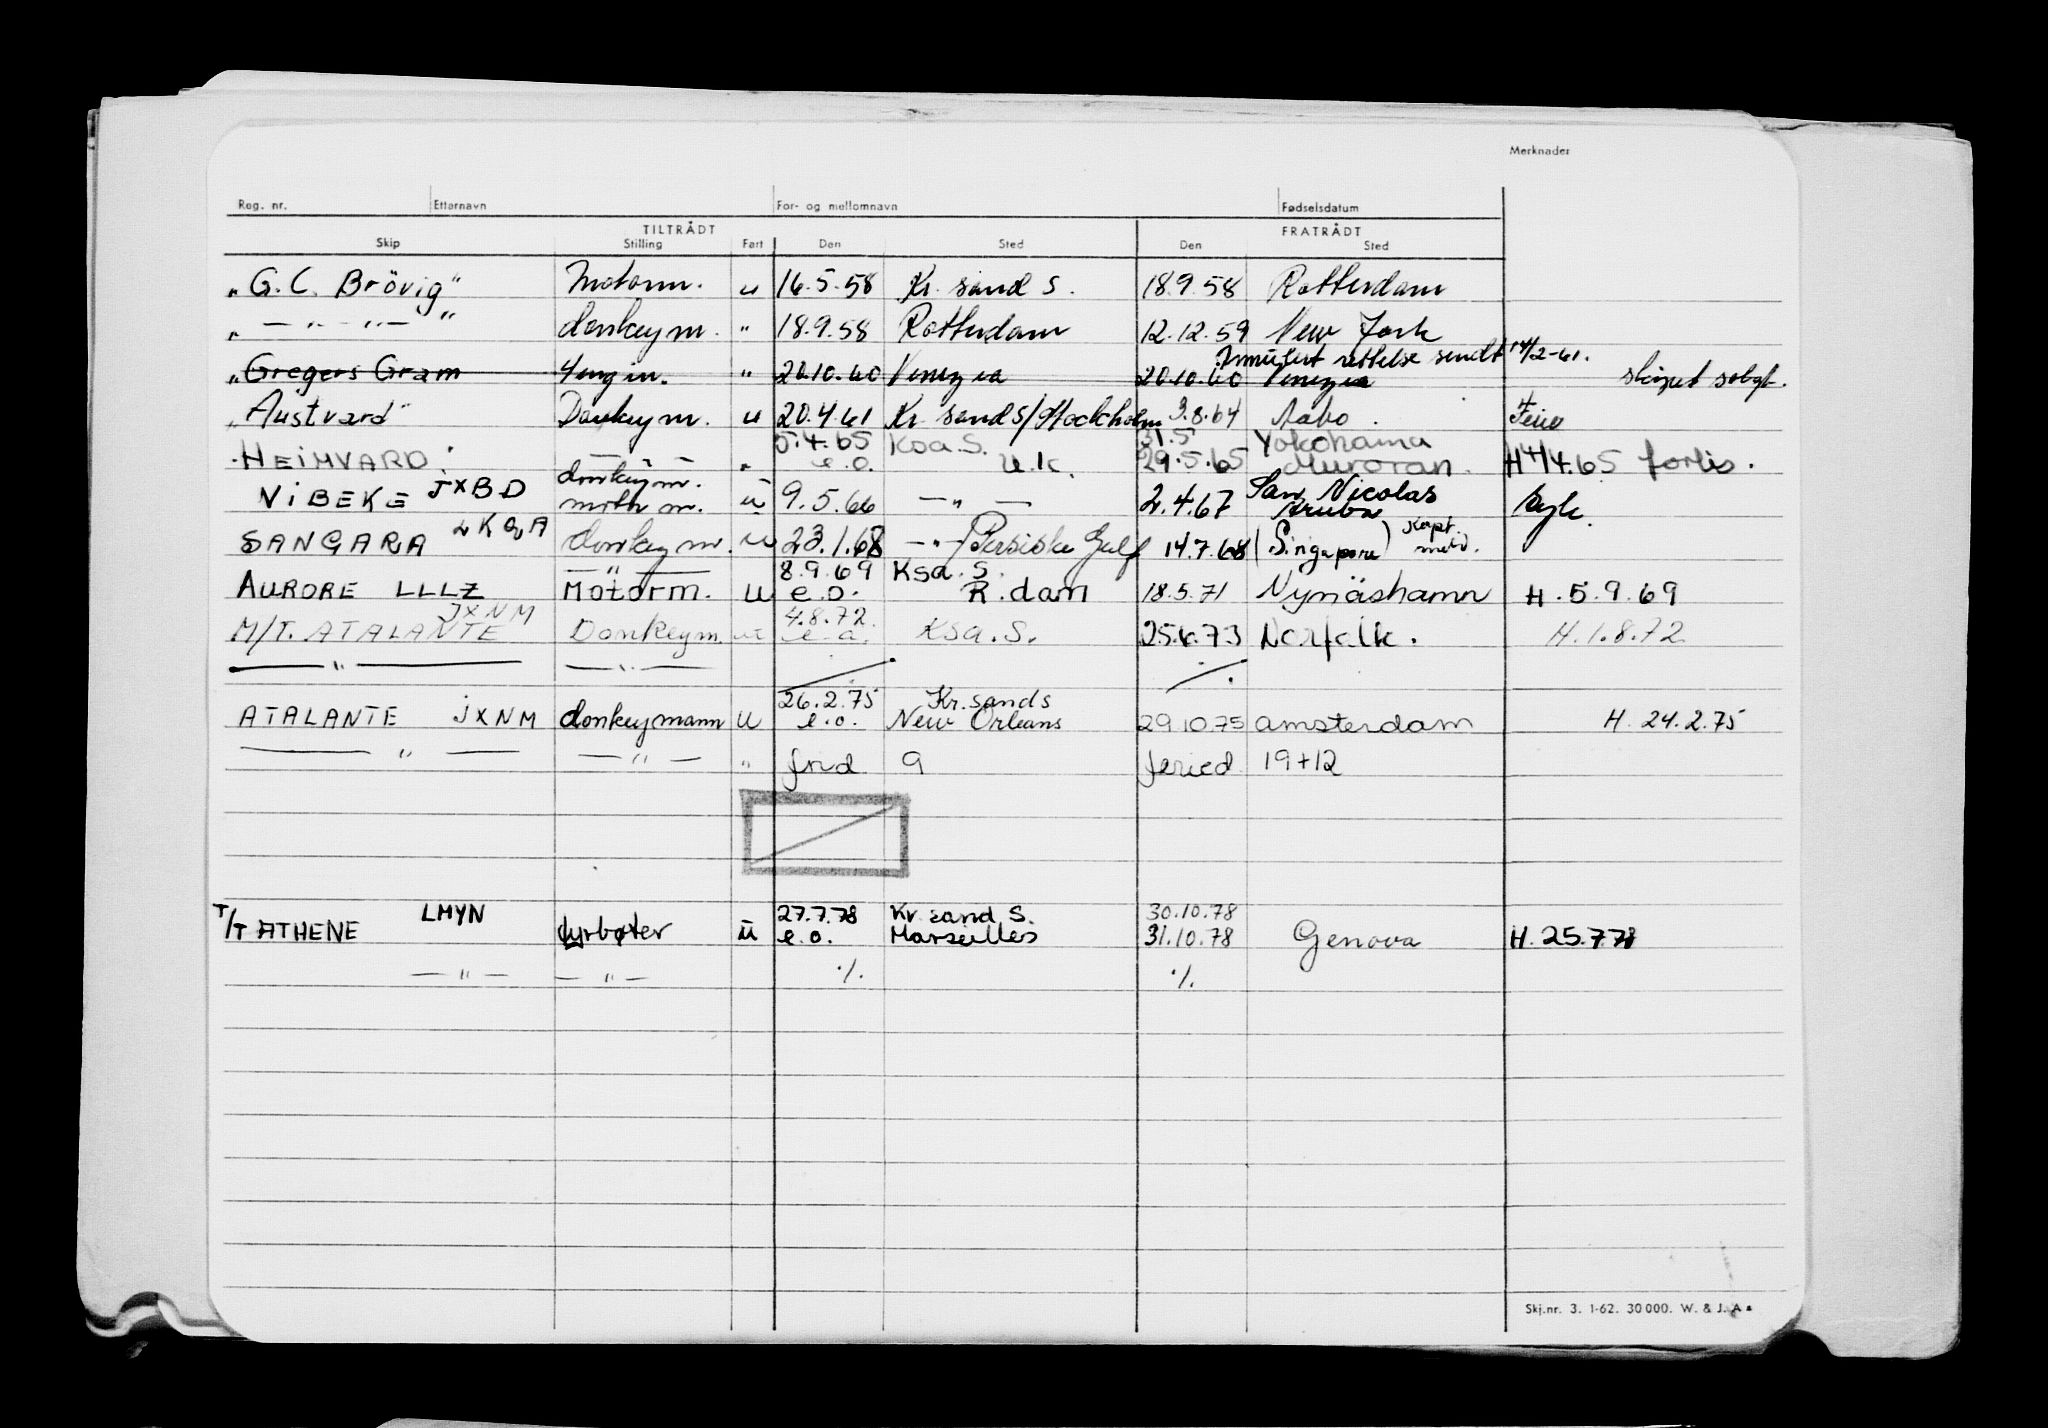 Merknader
Reg. nr. Etternavn For- og mellomnavn Fødselsdatum
TILTRÅDT FRATRÅDT
Skip Stilling Fart Den Sted Den Sted
„G.C. Brövig" Motorm. u 16.5.58 Kr. sand S. 18.9.58 Rotterdam
„ — " — " — " donkeym. " 18.9.58 Rotterdam 12.12.59 New York
rettelse sendt 14/2-61.
„Gregers Gram " 20.10.60 Venezia 20.10.60 Venezia skipet solgt.
„Austvard" Donkeym. u 20.4.61 Kr. sand S/Stockholm 3.8.64 Aabo. Ferie
5.4.65 Ksa. S. 31.5 Yokohama
"HEIMVARD" — " — " e.o. U.K. 29.5.65 Muroran. H 4/4.65 forlis.
donkeym. San Nicolas
VIBEKE JXBD moth m. ü 9.5.66 — " — 2.4.67 Aruba syk.
SANGARA LKQA donkeym. u 23.1.68 — " — / Persiske Gulf 14.7.68 (Singapore) kapt. meld.
— " — 8.9.69 Ksa. S.
AURORE LLLZ Motorm. U e.o. R.dam 18.5.71 Nynäshamn H. 5.9.69
JXNM 4.8.72.
M/T. ATALANTE Donkeym. u e.o. Ksa. S. 25.6.73 Norfolk. H. 1.8.72
— " — — " — ./. ./.
26.2.75 Kr.sands
ATALANTE JXNM donkeymann U e.o. New Orleans 29.10.75 Amsterdam H. 24.2.75
— " — — " — " frid 9 feried 19+12
27.7.78 Kr. sand S. 30.10.78
T/T ATHENE LMYN fyrbøter ü e.o. Marseilles 31.10.78 Genova H. 25.7.78
— " — — " — ./. ./.
Skj.nr. 3. 1-62. 30 000. W. & J. A